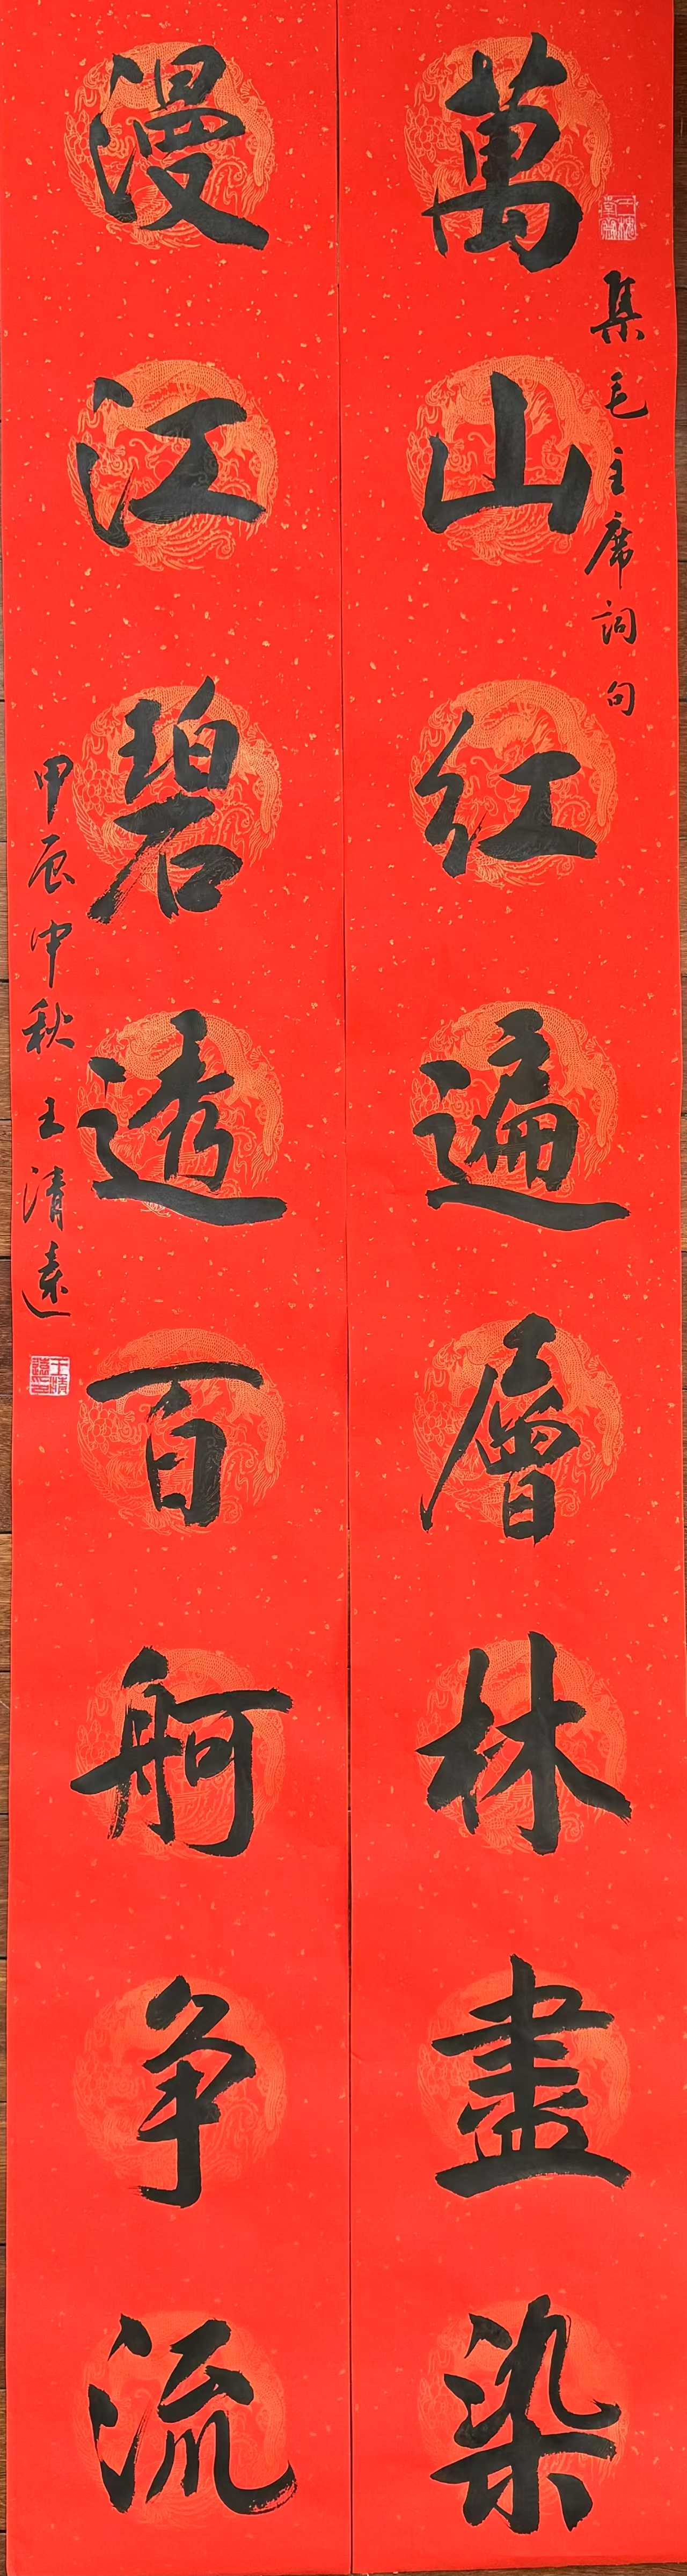 集毛主席词句
萬山红遍層林盡染
漫江碧透百舸争流
甲辰中秋王清远